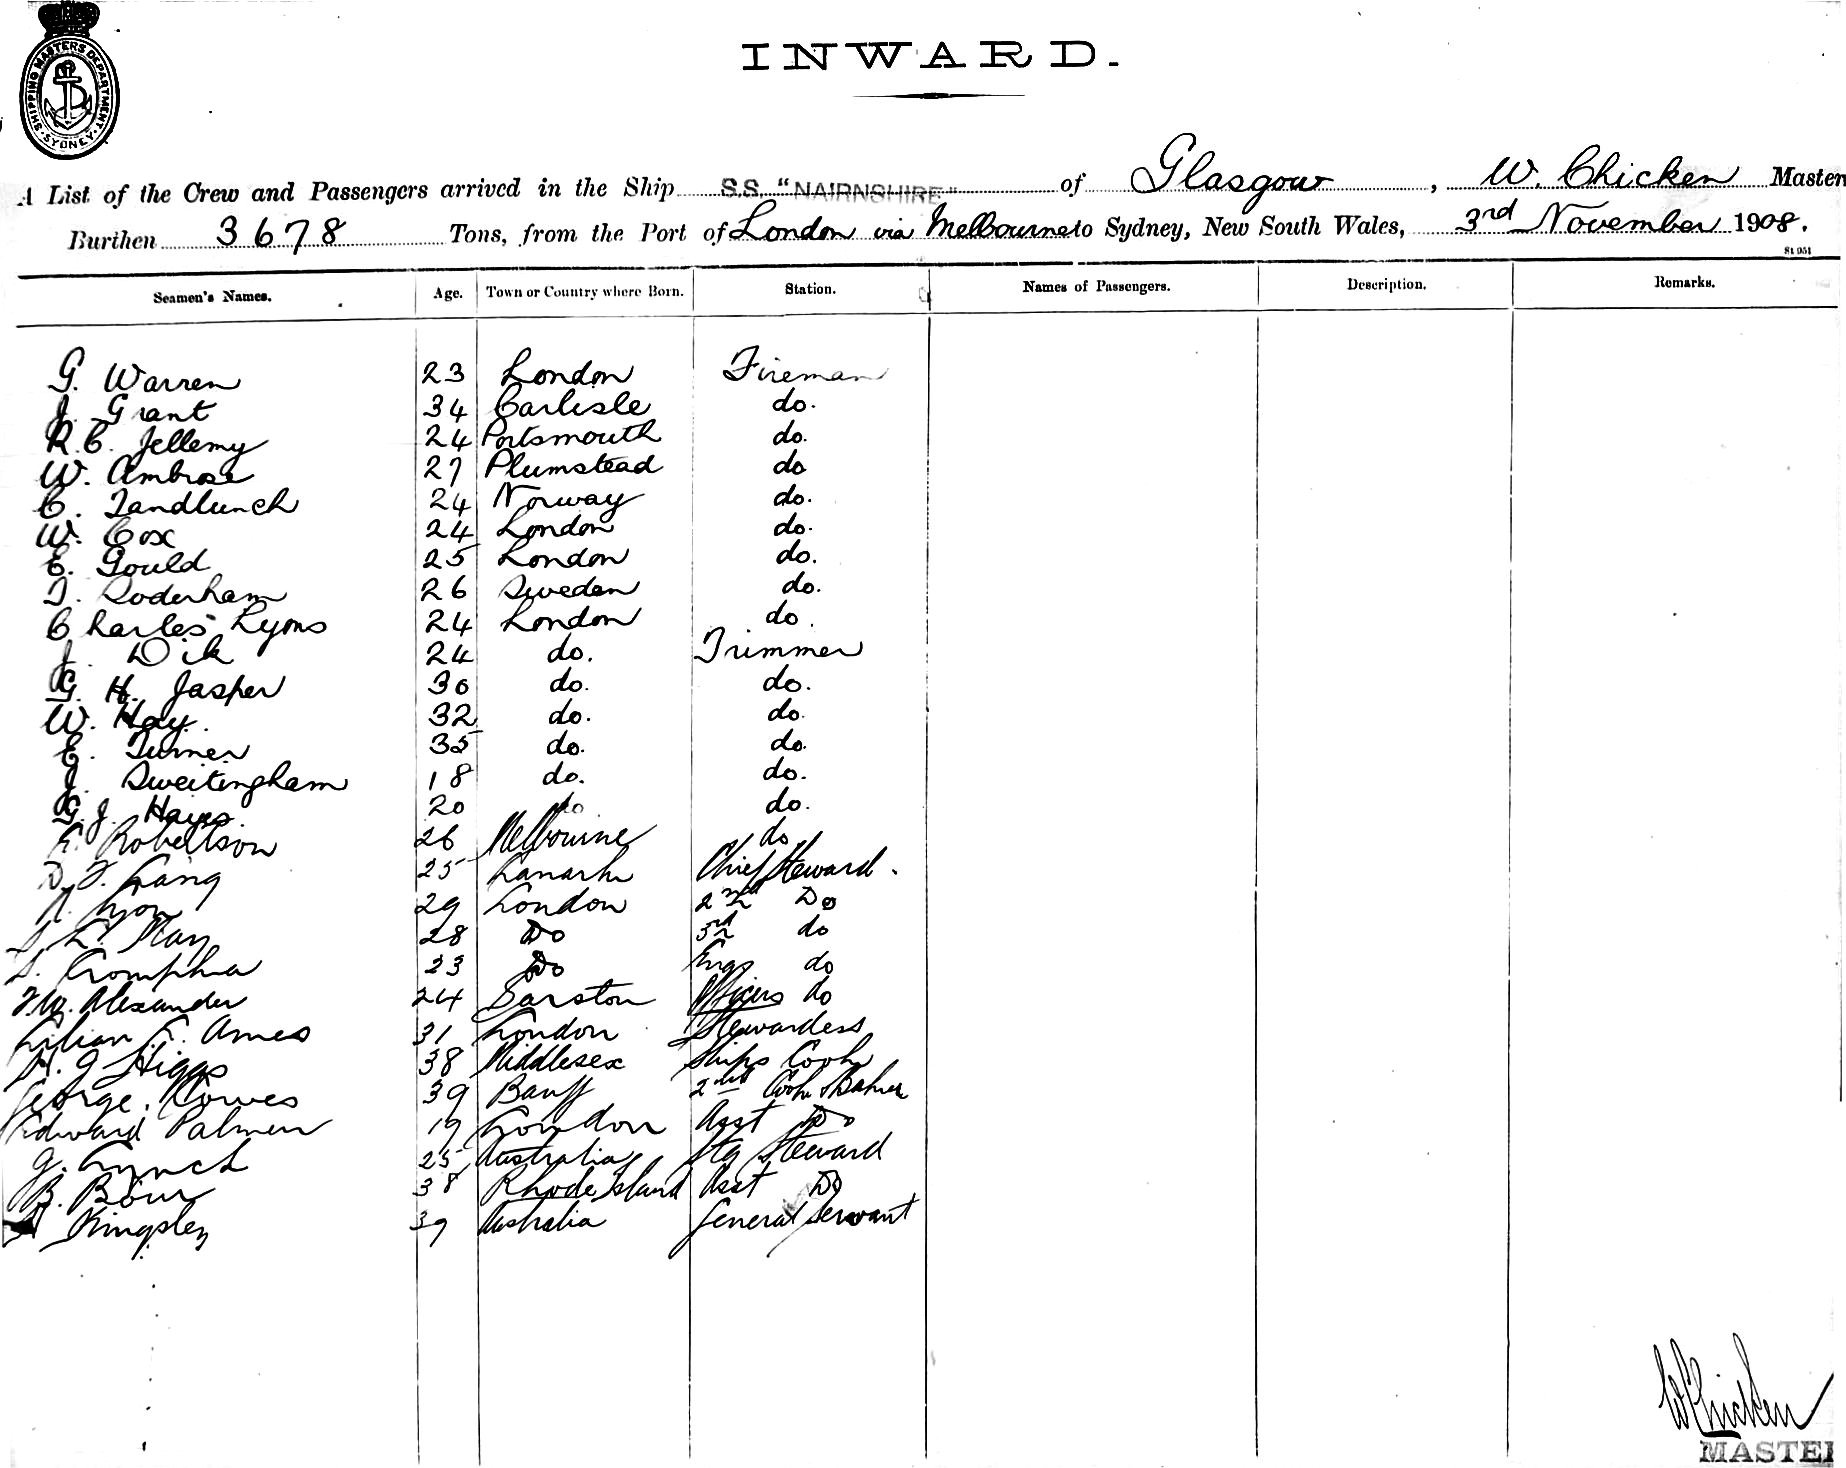 SHIPPING MASTERS DEPARTMENT
SYDNEY
INWARD.
A List of the Crew and Passengers arrived in the Ship S.S. "NAIRNSHIRE" of Glasgow, W. Chicken Master
Burthen 3678 Tons, from the Port of London via Melbourne to Sydney, New South Wales, 3rd November 1908.
81 951
Seamen's Names. Age. Town or Country where Born. Station. Names of Passengers. Description. Remarks.
G. Warren 23 London Fireman
J. Grant 34 Carlisle do.
R. C. Jellemy 24 Portsmouth do.
W. Ambrose 27 Plumstead do
C. Tandlunch 24 Norway do.
W. Cox 24 London do.
E. Gould 25 London do.
T. Soderham 26 Sweden do.
Charles Lyons 24 London do.
J. Dik 24 do. Trimmer
G. H. Jasper 30 do. do.
W. Hay. 32 do. do.
E. Turner 35 do. do.
J. Sweitingham 18 do. do.
G. J. Hayes. 20 do do.
Robertson 26 Melbourne do
Lang 25 Lanark Chief Steward.
Lyon 29 London 2nd Do
May 28 Do 3rd do
23 Do Engs do
Alexander 24 Barston Officers do
Lilian Ames 31 London Stewardess
Higgs 38 Middlesex Ships Cook
George Cowes 39 Banff 2nd Cook & Baker
Edward Palmer 19 London Asst Do
J. Lynch 25 Australia Stg Steward
B. Bour 38 Rhode Island Asst Do
Kingsley 39 Australia General Servant
W Chicken
MASTER